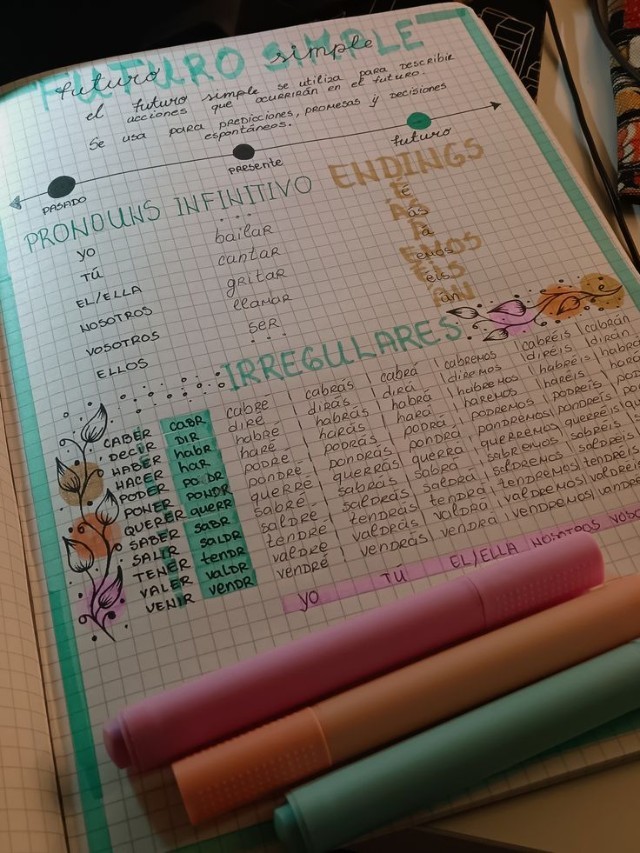 FUTURO SIMPLE
futuro simple
el futuro simple se utiliza para describir
acciones que ocurrirán en el futuro.
Se usa para predicciones, promesas y decisiones
espontáneos.
PASADO presente futuro
PRONOUNS INFINITIVO ENDINGS
yo bailar é
TÚ cantar ás
EL/ELLA gritar á
NOSOTROS llamar emos
VOSOTROS ser éis
ELLOS án
IRREGULARES
CABER CABR cabré cabrás cabrá cabremos cabréis cabrán
DECIR DIR diré dirás dirá diremos diréis dirán
HABER habr habré habrás habrá habremos habréis
HACER har haré harás hará haremos haréis
PODER PODR podré podrás podrá podremos podréis
PONER PONDR pondré pondrás pondrá pondremos pondréis
QUERER querr querré querrás querrá querremos querréis
SABER SABR sabré sabrás sabrá sabremos sabréis
SALIR SALDR saldré saldrás saldrá saldremos saldréis
TENER tendr tendré tendrás tendrá tendremos tendréis
VALER VALDR valdré valdrás valdrá valdremos valdréis
VENIR VENDR vendré vendrás vendrá vendremos
yo TÚ EL/ELLA NOSOTROS